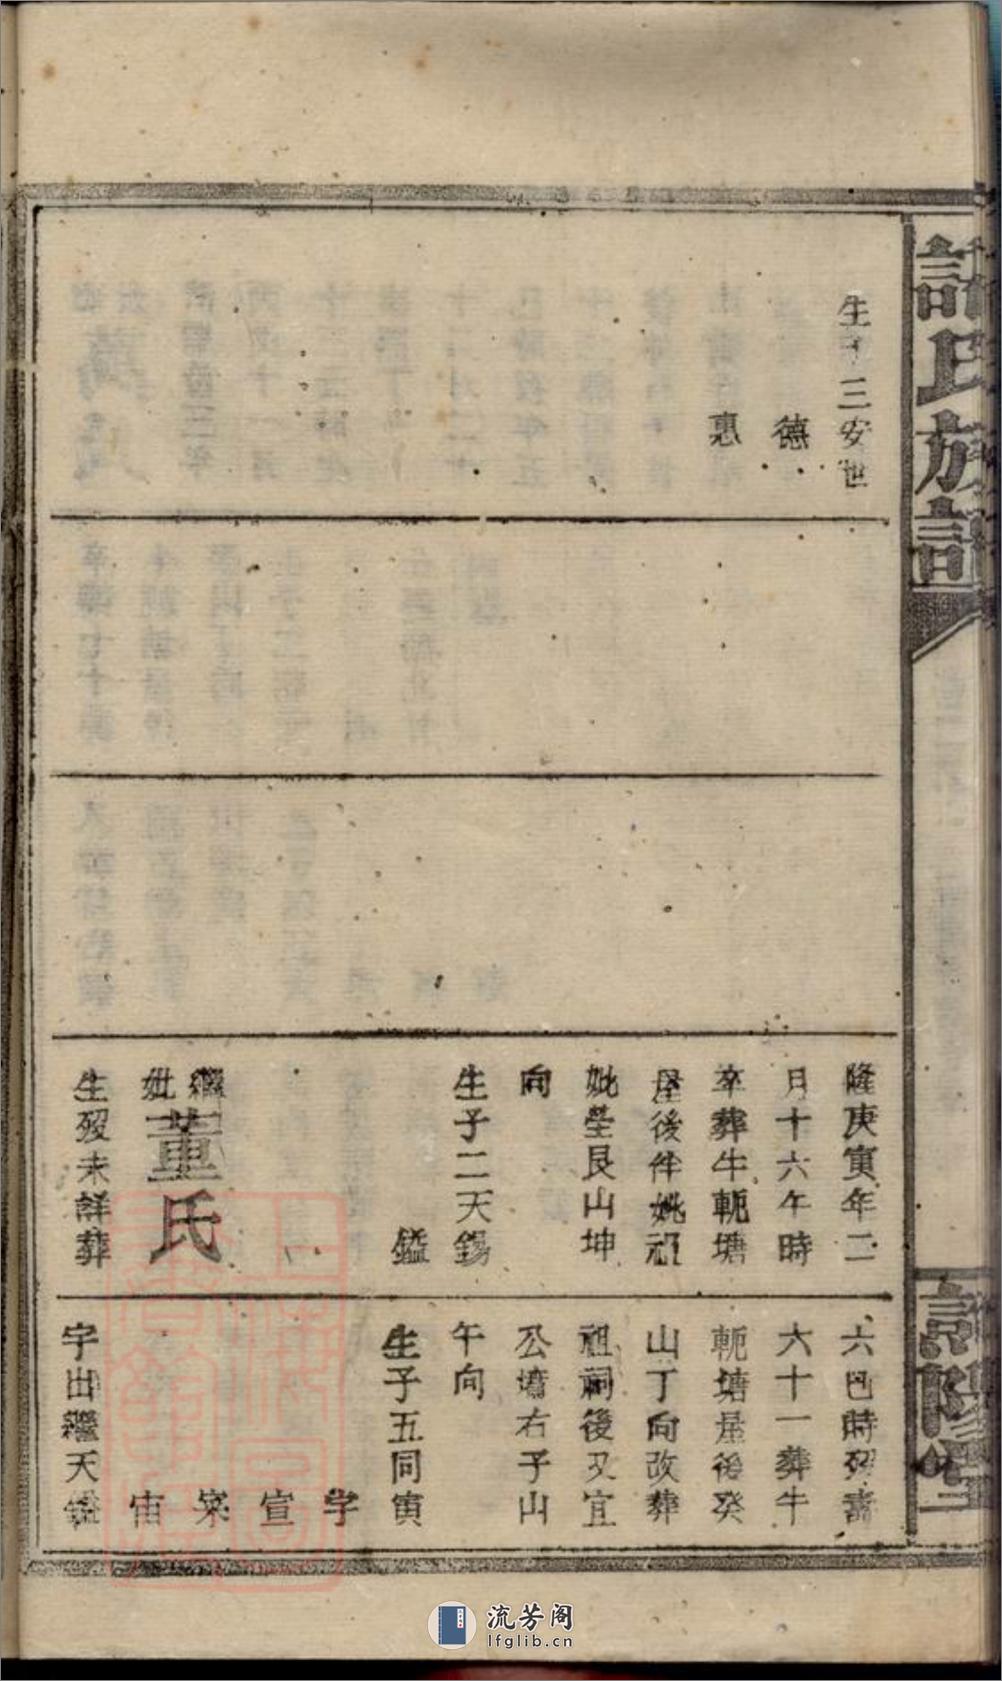 許氏族譜
生子三安世
德
惠
隆庚寅年二
月十六午時
卒葬牛軛塘
屋後伴姚祖
妣塋艮山坤
向
生子二天錫
鎰
繼
妣董氏
生歿未詳葬
六巳時歿壽
六十一葬牛
軛塘屋後癸
山丁向改葬
祖祠後又宜
公墳右子山
午向
生子五同寅
字
宣
寀
宙
字出繼天鎰
流芳阁
lfglib.cn